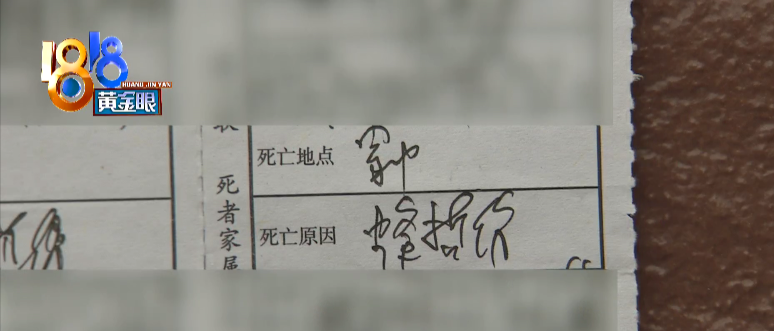 1818
HUANG JIN YAN
黄金眼
死亡地点 家中
死者家属
死亡原因 蜂蜇伤